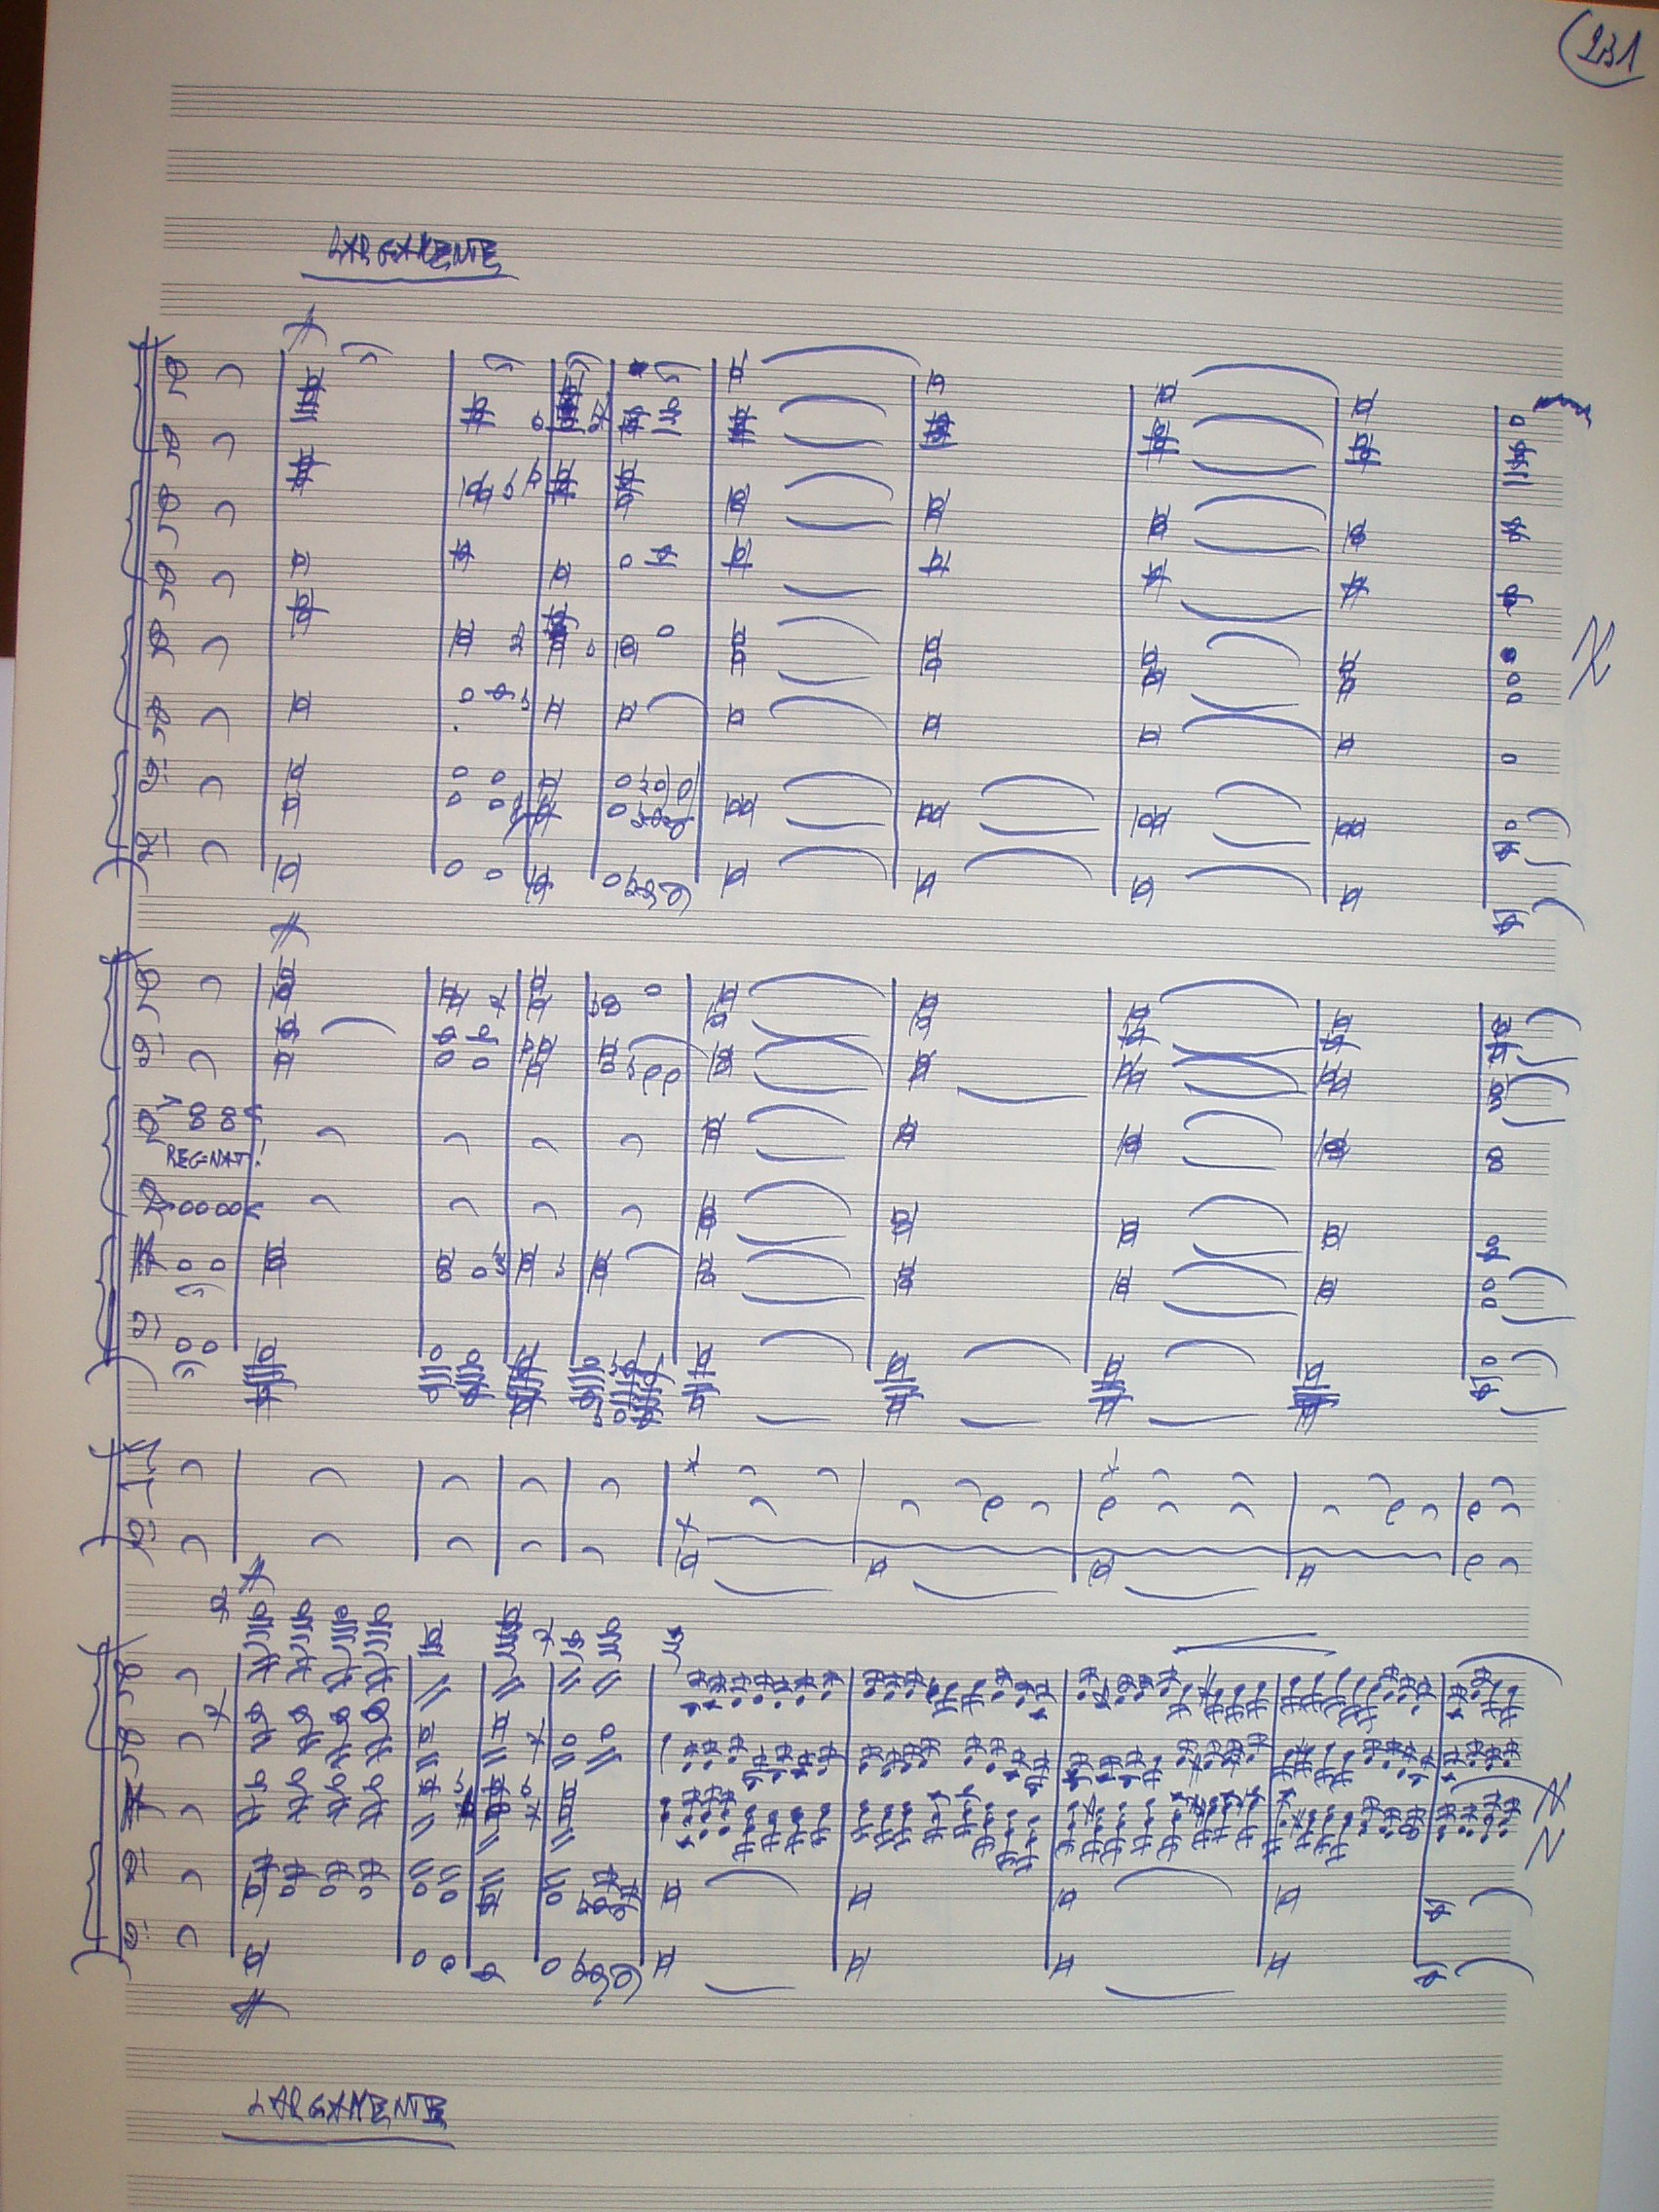 231
LARGAMENTE
REGNAT!
LARGAMENTE